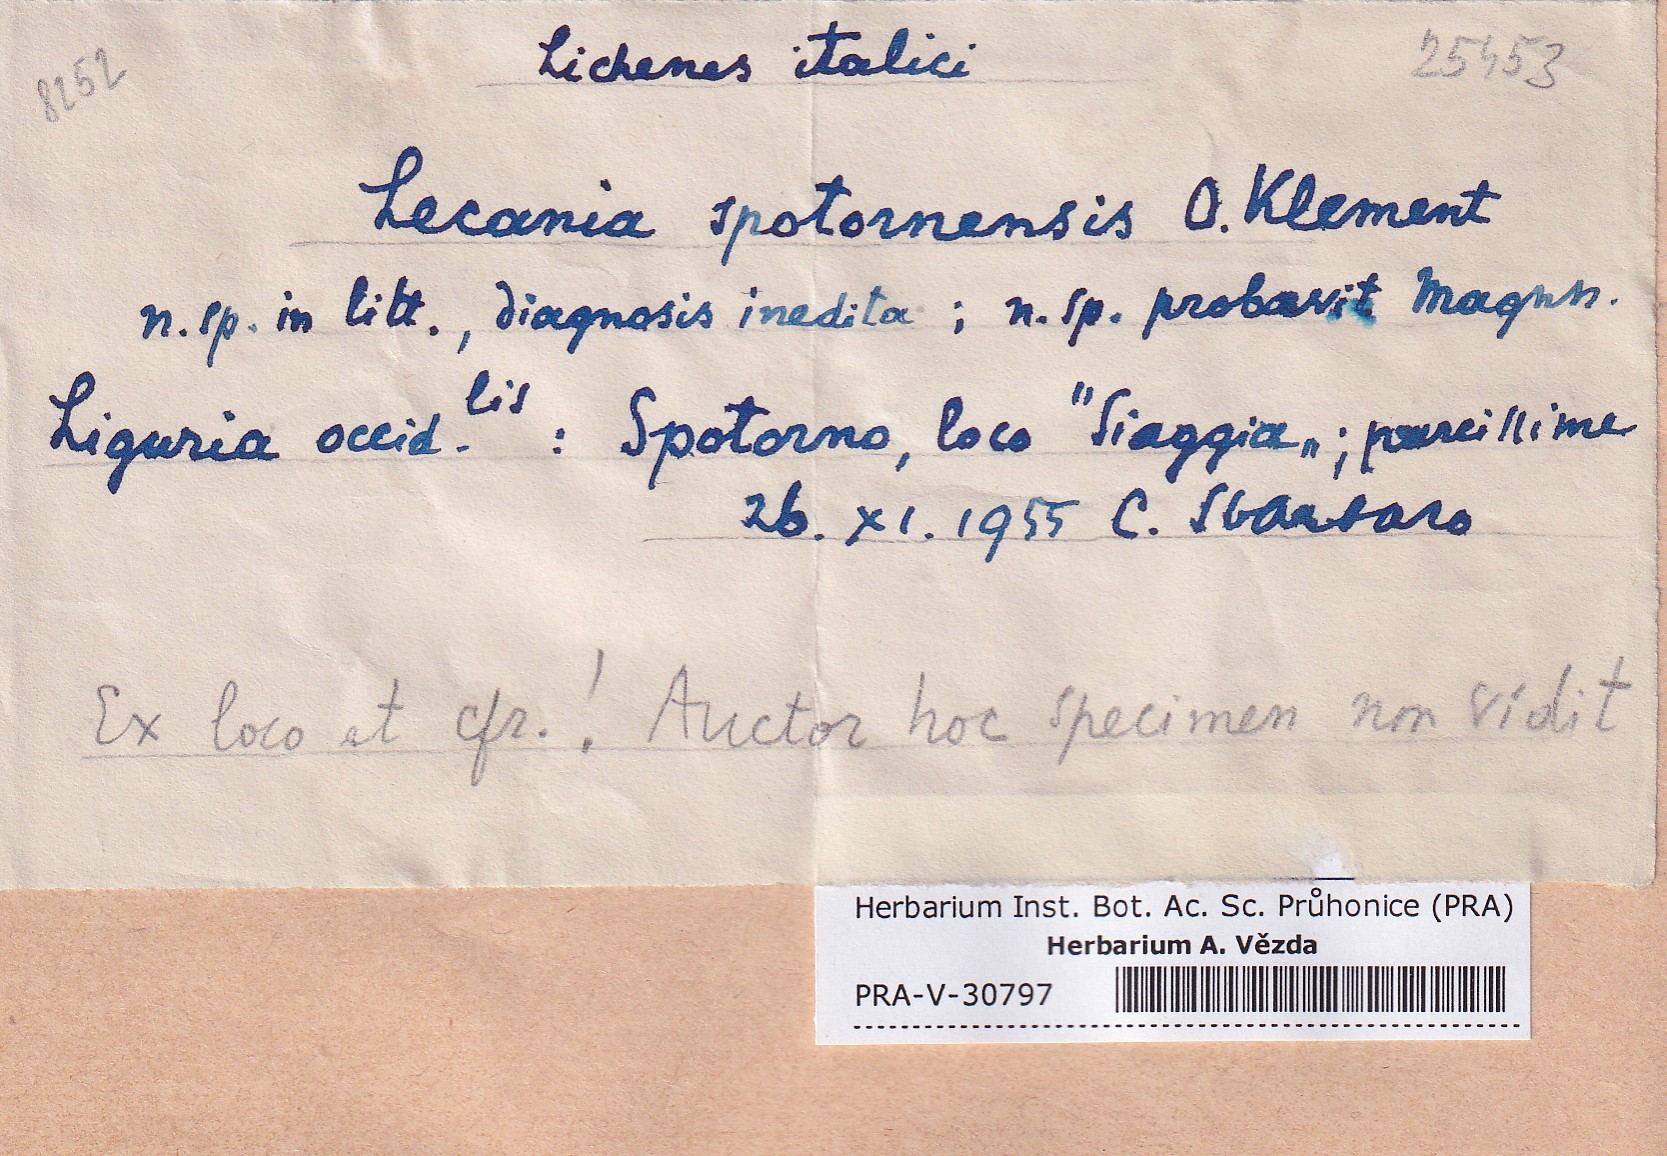 8252
Lichenes italici
25453
Lecania spotornensis O. Klement
n. sp. in litt., diagnosis inedita ; n. sp. probavit Magnn.
Liguria occid.lis : Spotorno, loco "Siaggia„ ; parcissime
26. XI. 1955 C. Sbarbaro
Ex loco et cfr. ! Auctor hoc specimen non vidit
Herbarium Inst. Bot. Ac. Sc. Průhonice (PRA)
Herbarium A. Vězda
PRA-V-30797